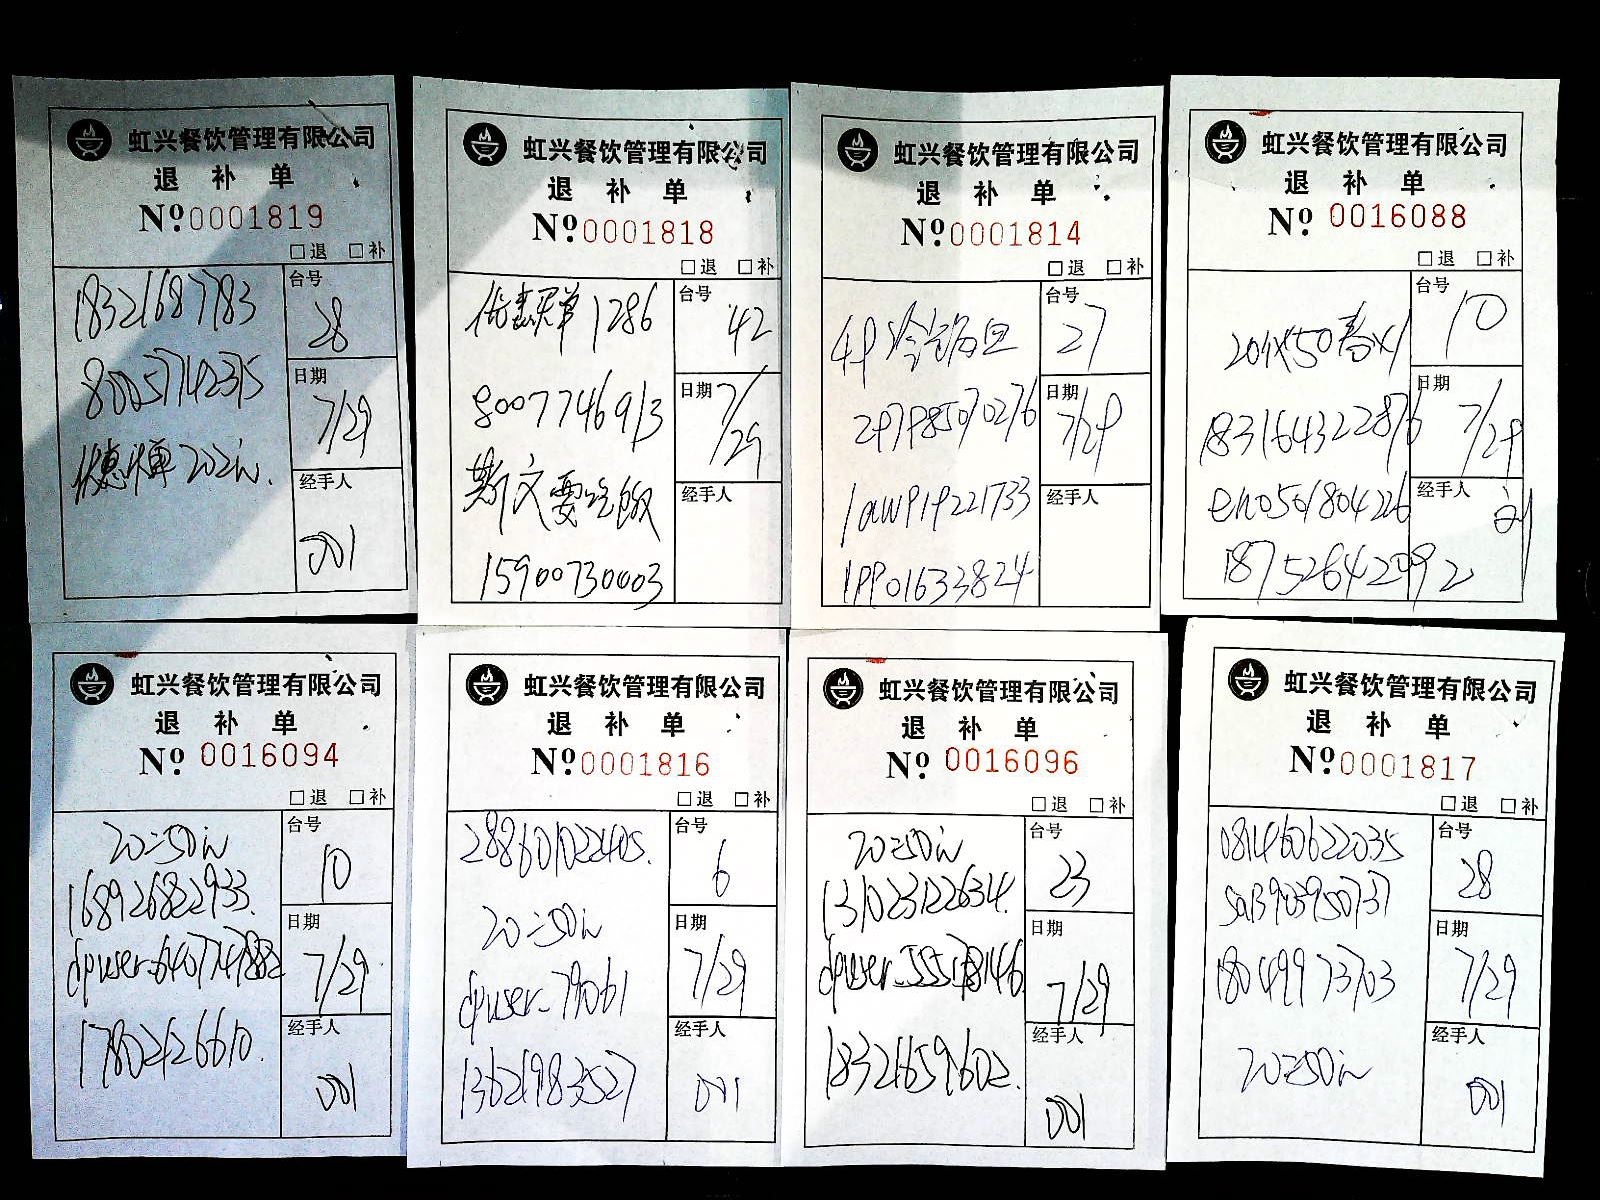 虹兴餐饮管理有限公司
退 补 单
Nº 0001819
□退 □补
18321687783
80057742315
优惠买单 202元.
台号
28
日期
7/29
经手人
001
虹兴餐饮管理有限公司
退 补 单
Nº 0001818
□退 □补
优惠买单 1286
8007746913
斯文要吃饭
15900730003
台号
42
日期
7/29
经手人
虹兴餐饮管理有限公司
退 补 单
Nº 0001814
□退 □补
297985070276
law919221733
19901633824
台号
27
日期
7/29
经手人
虹兴餐饮管理有限公司
退 补 单
Nº 0016088
□退 □补
183164322876
eno501804226
18752642092
台号
10
日期
7/29
经手人
刘
虹兴餐饮管理有限公司
退 补 单
Nº 0016094
□退 □补
20=50元
168926822933.
dpuser_6407747882
17802126610.
台号
10
日期
7/29
经手人
001
虹兴餐饮管理有限公司
退 补 单
Nº 0001816
□退 □补
288601022405.
20=50元
dpuser_79061
13621983527
台号
6
日期
7/29
经手人
001
虹兴餐饮管理有限公司
退 补 单
Nº 0016096
□退 □补
20=50元
131023122634.
dpuser_55578146
18321659602.
台号
23
日期
7/29
经手人
001
虹兴餐饮管理有限公司
退 补 单
Nº 0001817
□退 □补
081460622035
sa13903950737
18049973703
20=50元
台号
28
日期
7/29
经手人
001